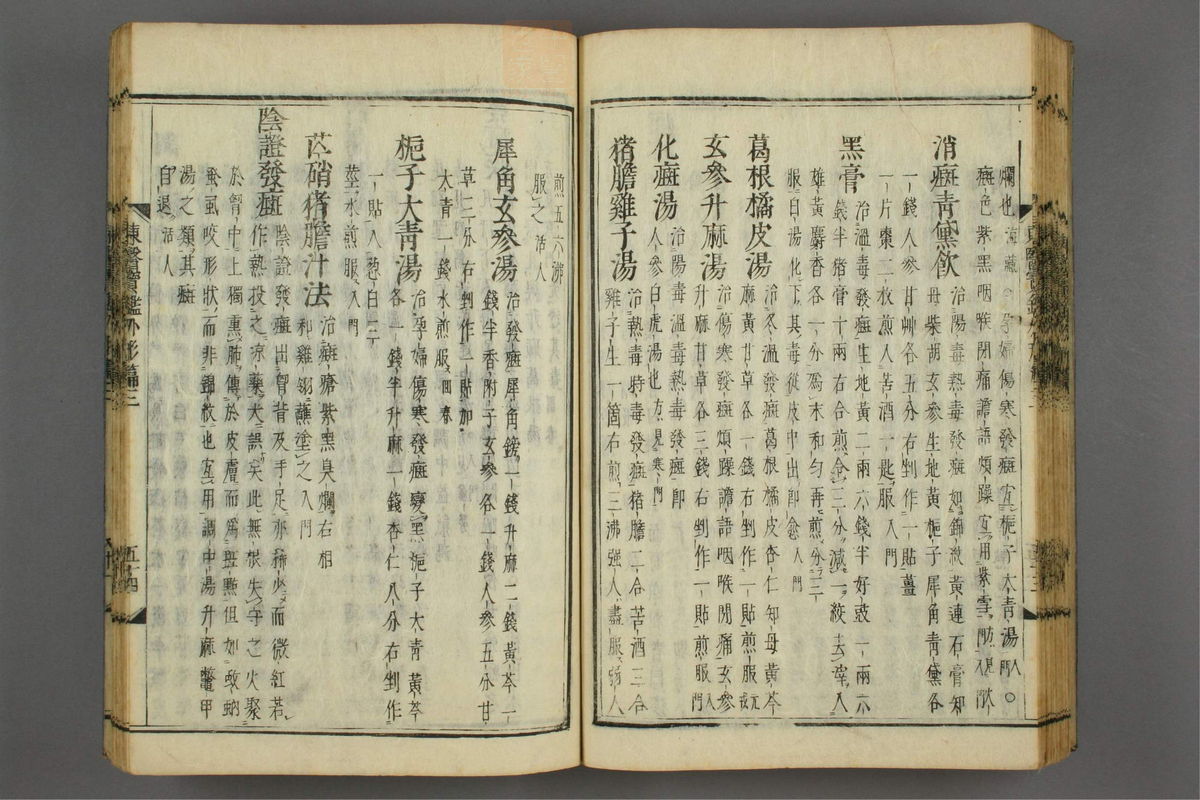 爛也活臟○孕婦傷寒發癍宜梔子大青湯入門○
癍色紫黑咽喉閉痛譫語煩躁宜用紫雪
消癍青黛飮
治陽毒熱毒發癍如錦紋黃連石膏知
母柴胡玄參生地黃梔子犀角青黛各
一錢人參甘艸各五分右剉作一貼薑
一片棗二枚煎入苦酒一匙服入門
黑膏
治溫毒發癍生地黃二兩六錢半好豉一兩六
錢半猪膏十兩右合煎令三分減一絞去滓入
雄黃麝香各一分爲末和勻再煎分三
服白湯化下其毒從皮中出卽愈入門
葛根橘皮湯
治冬溫發癍葛根橘皮杏仁知母黃芩
麻黃甘草各一錢右剉作一貼煎服
玄參升麻湯
治傷寒發癍煩躁譫語咽喉閉痛玄參
升麻甘草各三錢右剉作一貼煎服入門
化癍湯
治陽毒溫毒熱毒發癍卽
人參白虎湯也方見寒門
猪膽雞子湯
治熱毒時毒發癍猪膽二合苦酒三合
雞子生一箇右煎三沸強人盡服弱人
煎五六沸
服之活人
犀角玄參湯
治發癍犀角鎊一錢升麻二錢黃芩一
錢半香附子玄參各一錢人參五分甘
草三分右剉作一貼加
大青一錢水煎服回春
梔子大青湯
治孕婦傷寒發癍變黑梔子大青黃芩
各一錢半升麻一錢杏仁八分右剉作
一貼入葱白三
莖水煎服入門
芒硝猪膽汁法
治癍瘡紫黑臭爛右相
和雞翎蘸塗之入門
陰證發癍
陰證發癍出胷背及手足亦稀少而微紅若
作熱投之涼藥大誤矣此無根失守之火聚
於胷中上獨熏肺傳於皮膚而爲斑點但如蚊蚋
蚤虱咬形狀而非錦紋也宜用調中湯升麻鼈甲
湯之類其癍
自退活人
東醫寶鑑外形篇三
五十四